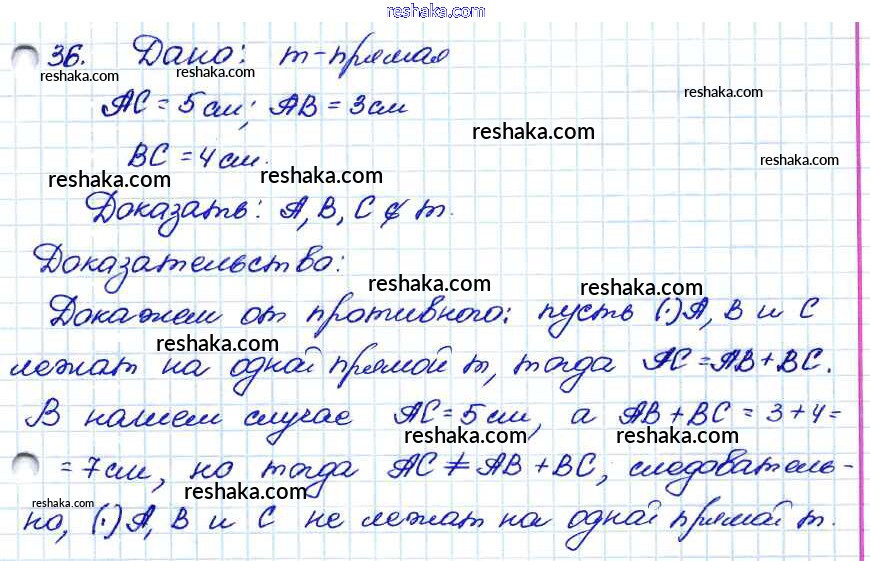 reshaka.com
36. Дано: m-прямая
reshaka.com reshaka.com
reshaka.com
AC = 5 см; AB = 3 см
reshaka.com
BC = 4 см.
reshaka.com
reshaka.com reshaka.com
Доказать: A, B, C ∉ m.
Доказательство:
reshaka.com reshaka.com
Докажем от противного: пусть (·)A, B и C
reshaka.com
лежат на одной прямой m, тогда AC = AB + BC.
В нашем случае AC = 5 см, а AB + BC = 3 + 4 =
reshaka.com reshaka.com
= 7 см, но тогда AC ≠ AB + BC, следователь-
reshaka.com reshaka.com
но, (·)A, B и C не лежат на одной прямой m.